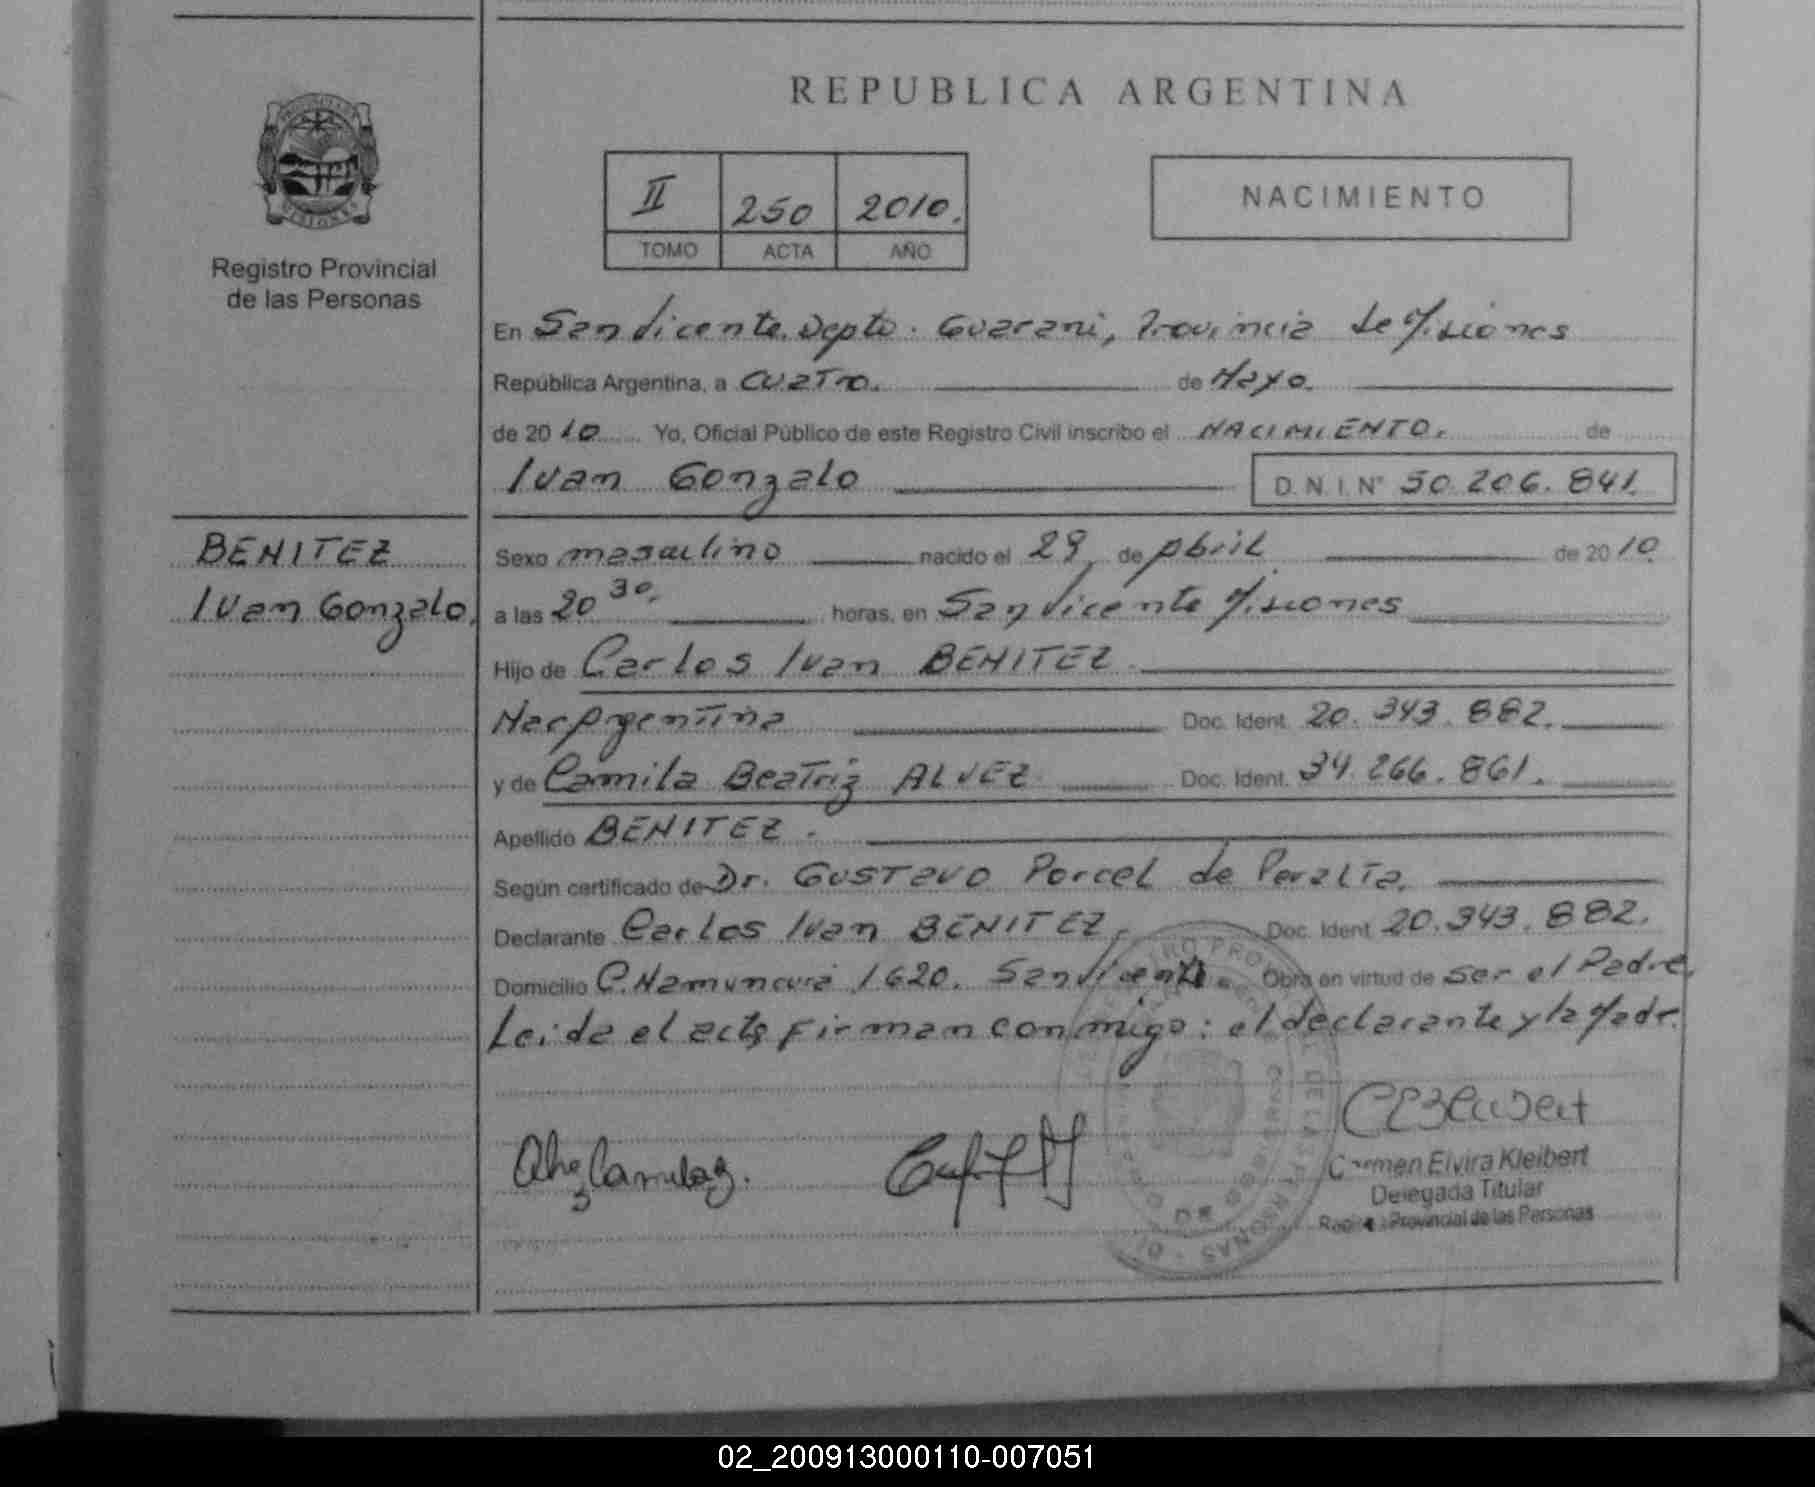 REPUBLICA ARGENTINA
II 250 2010.
TOMO ACTA AÑO
NACIMIENTO
Registro Provincial
de las Personas
En San Vicente. Depto. Guarani, Provincia de Misiones
República Argentina, a cuatro. de Mayo.
de 20 10 Yo, Oficial Público de este Registro Civil inscribo el NACIMIENTO. de
Ivan Gonzalo D.N.I. N° 50.206.841.
BENITEZ
Ivan Gonzalo.
Sexo masculino nacido el 29 de Abril de 20 10
a las 20 30. horas, en San Vicente Misiones
Hijo de Carlos Ivan BENITEZ.
Nac Argentina Doc. Ident. 20.343.882.
y de Camila Beatriz ALVEZ Doc. Ident. 34.266.861.
Apellido BENITEZ.
Según certificado de Dr. Gustavo Porcel de Peralta.
Declarante Carlos Ivan BENITEZ, Doc. Ident 20.343.882.
Domicilio C. Namuncura 1620. San Vicente Obra en virtud de ser el Padre,
Leida el acta firman conmigo: el declarante y la Madr.
Carmen Elvira Kleibert
Delegada Titular
Provincial de las Personas
02_200913000110-007051